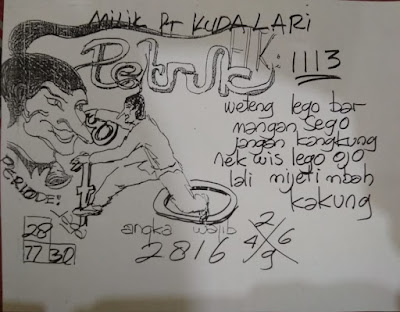 MILIK PT KUDA LARI
Petruk HK: 1113
weteng lego bar
mangan sego
jangan kangkung
nek wis lego ojo
lali mijeti mbah
kakung
PERIODE:
28
77 30
angka wajib
2816
2
4 6
9